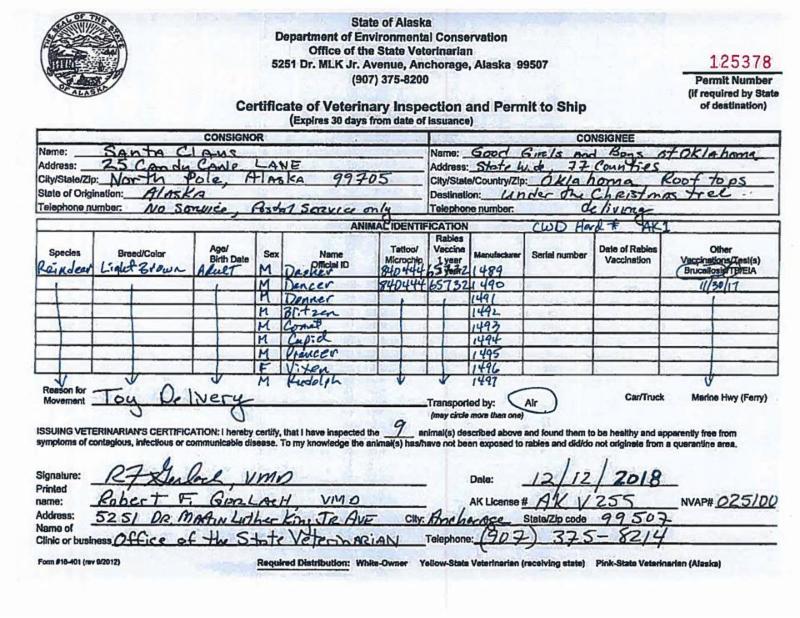 THE SEAL OF THE STATE OF ALASKA
State of Alaska
Department of Environmental Conservation
Office of the State Veterinarian
5251 Dr. MLK Jr. Avenue, Anchorage, Alaska 99507
(907) 375-8200
125378
Permit Number
(if required by State
of destination)
Certificate of Veterinary Inspection and Permit to Ship
(Expires 30 days from date of issuance)
CONSIGNOR CONSIGNEE
Name: Santa Claus Name: Good Girls and Boys of Oklahoma
Address: 25 Candy Cane LANE Address: State Wide 77 Counties
City/State/Zip: North Pole, Alaska 99705 City/State/Country/Zip: Oklahoma Roof tops
State of Origination: Alaska Destination: under the Christmas tree
Telephone number: No Service, Postal Service only Telephone number: delivery
ANIMAL IDENTIFICATION CWD Herd # AK1
Species Breed/Color Age/ Birth Date Sex Name Official ID Tattoo/ Microchip Rabies Vaccine 1 year Manufacturer Serial number Date of Rabies Vaccination Other Vaccinations/Test(s)
Reindeer Light Brown Adult M Dasher 840444 65732 1489 Brucellosis/TB/EIA
M Dancer 840444 65732 1490 11/30/17
M Donner 1491
M Blitzen 1492
M Comet 1493
M Cupid 1494
M Prancer 1495
F Vixen 1496
M Rudolph 1497
Reason for Movement Toy Delivery Transported by: Air Car/Truck Marine Hwy (Ferry)
(may circle more than one)
ISSUING VETERINARIAN'S CERTIFICATION: I hereby certify, that I have inspected the 9 animal(s) described above and found them to be healthy and apparently free from
symptoms of contagious, infectious or communicable disease. To my knowledge the animal(s) has/have not been exposed to rabies and did/do not originate from a quarantine area.
Signature: RF Gerlach, VMD Date: 12/12/2018
Printed name: Robert F. GERLACH, VMD AK License # AK V255 NVAP# 025100
Address: 5251 DR. Martin Luther King JR AVE City: Anchorage State/Zip code 99507
Name of Clinic or business Office of the State Veterinarian Telephone: (907) 375-8214
Form #18-401 (rev 9/2012) Required Distribution: White-Owner Yellow-State Veterinarian (receiving state) Pink-State Veterinarian (Alaska)